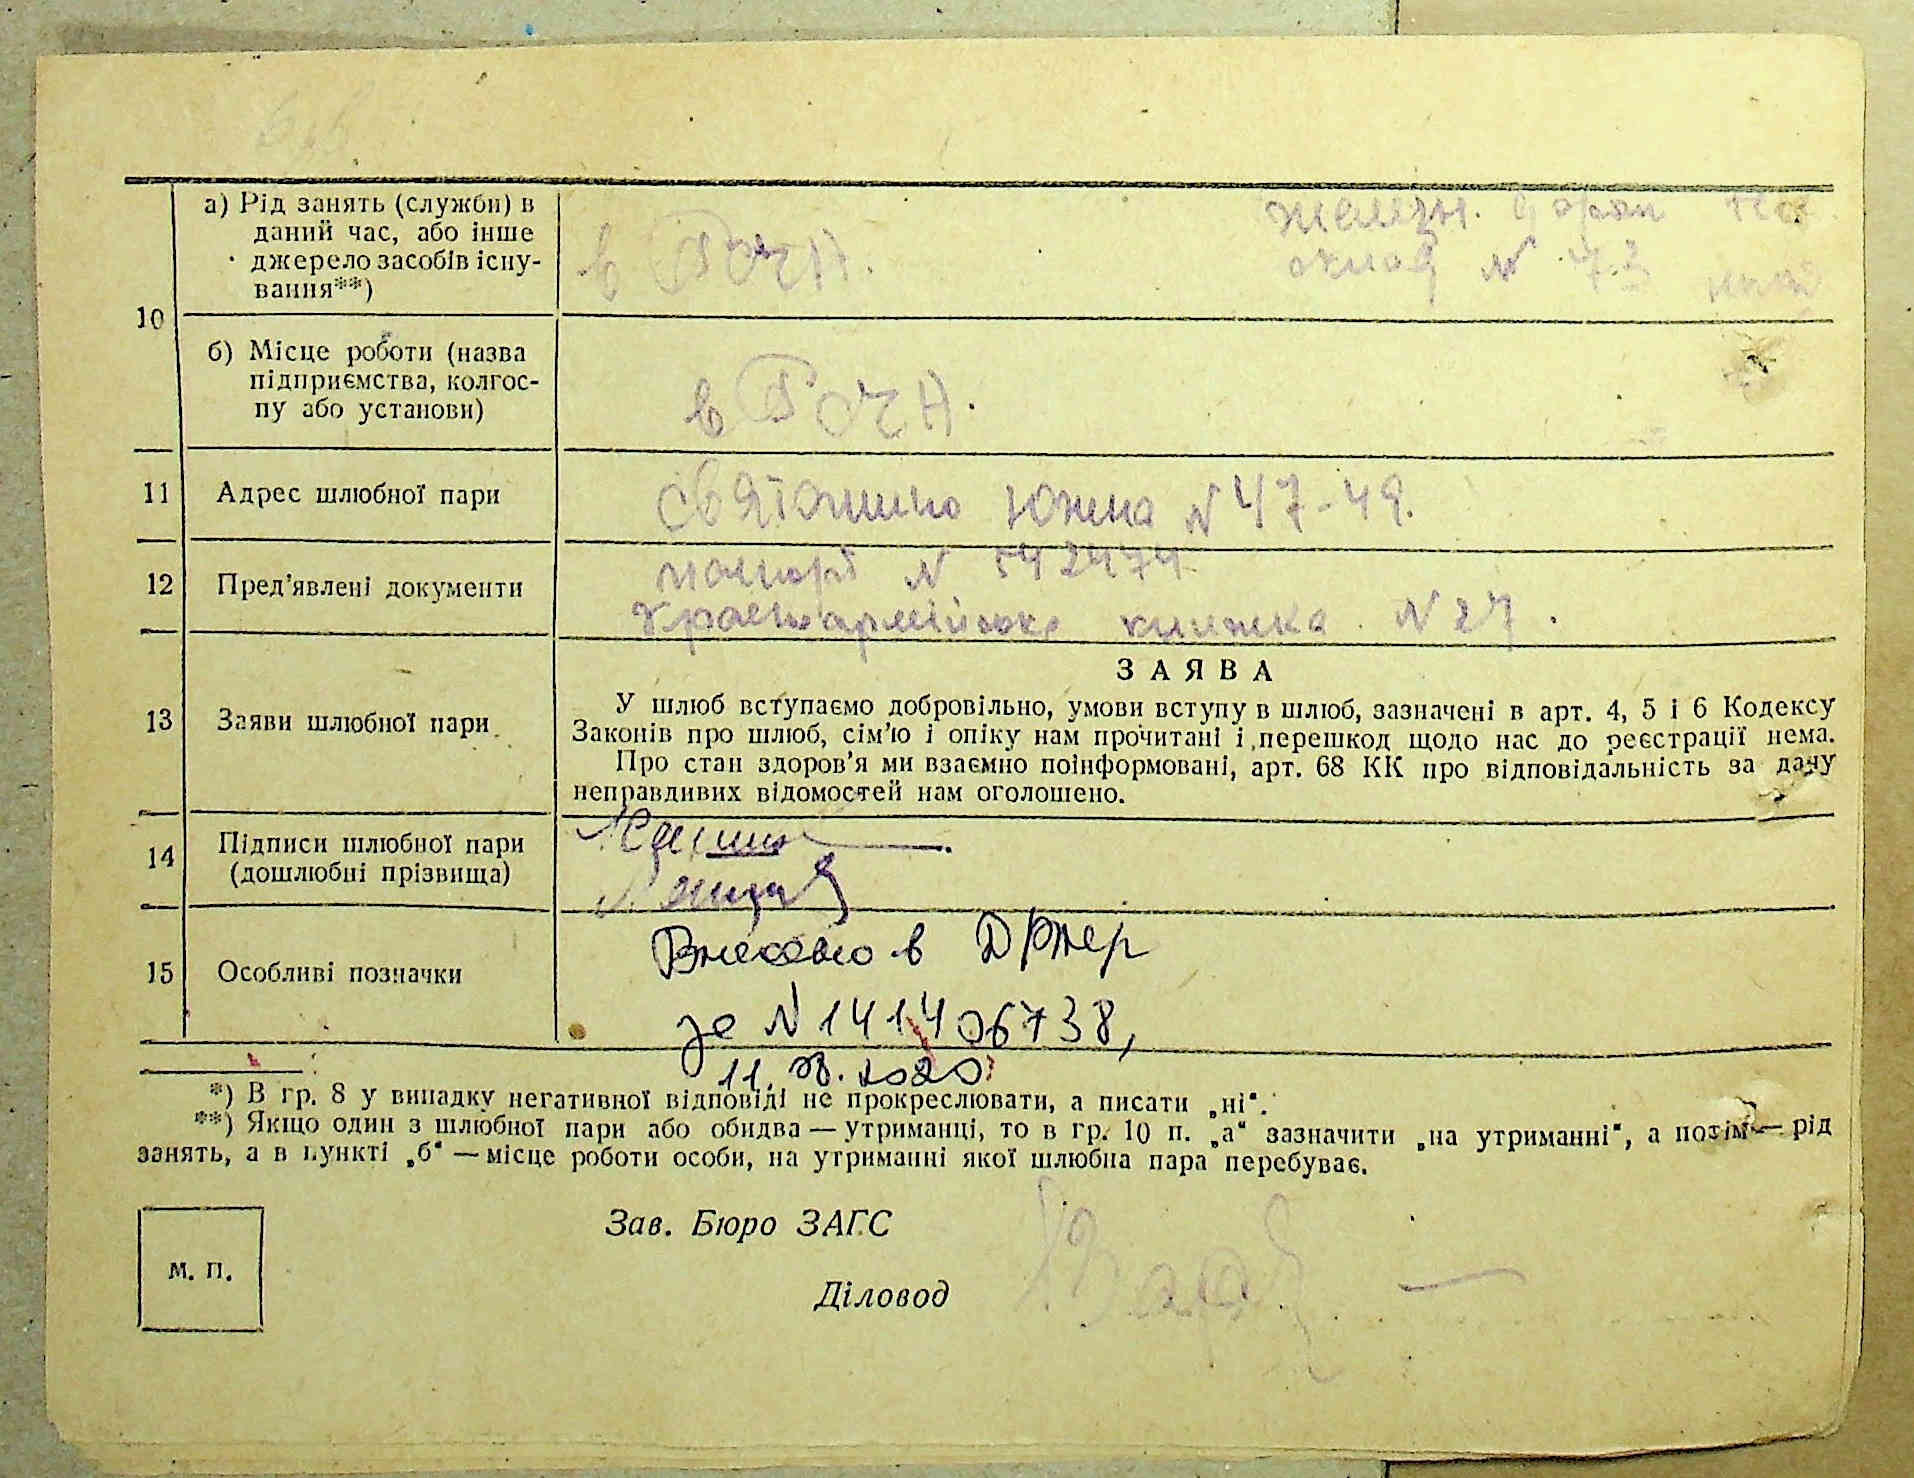 10
а) Рід занять (служби) в
даний час, або інше
джерело засобів існу-
вання**)
в
железн.
склад № 73
б) Місце роботи (назва
підприємства, колгос-
пу або установи)
в
11 Адрес шлюбної пари
Святошино Южна № 47-49.
12 Пред'явлені документи
паспорт № 542474
Красноармійська книжка № 27.
13 Заяви шлюбної пари
ЗАЯВА
У шлюб вступаємо добровільно, умови вступу в шлюб, зазначені в арт. 4, 5 і 6 Кодексу
Законів про шлюб, сім'ю і опіку нам прочитані і перешкод щодо нас до реєстрації нема.
Про стан здоров'я ми взаємно поінформовані, арт. 68 КК про відповідальність за дачу
неправдивих відомостей нам оголошено.
14 Підписи шлюбної пари
(дошлюбні прізвища)
15 Особливі позначки
Внесено в
за № 141406738,
2020
*) В гр. 8 у випадку негативної відповіді не прокреслювати, а писати „ні“.
**) Якщо один з шлюбної пари або обидва — утриманці, то в гр. 10 п. „а“ зазначити „на утриманні“, а потім — рід
занять, а в пункті „б“ — місце роботи особи, на утриманні якої шлюбна пара перебуває.
Зав. Бюро ЗАГС
м. п.
Діловод